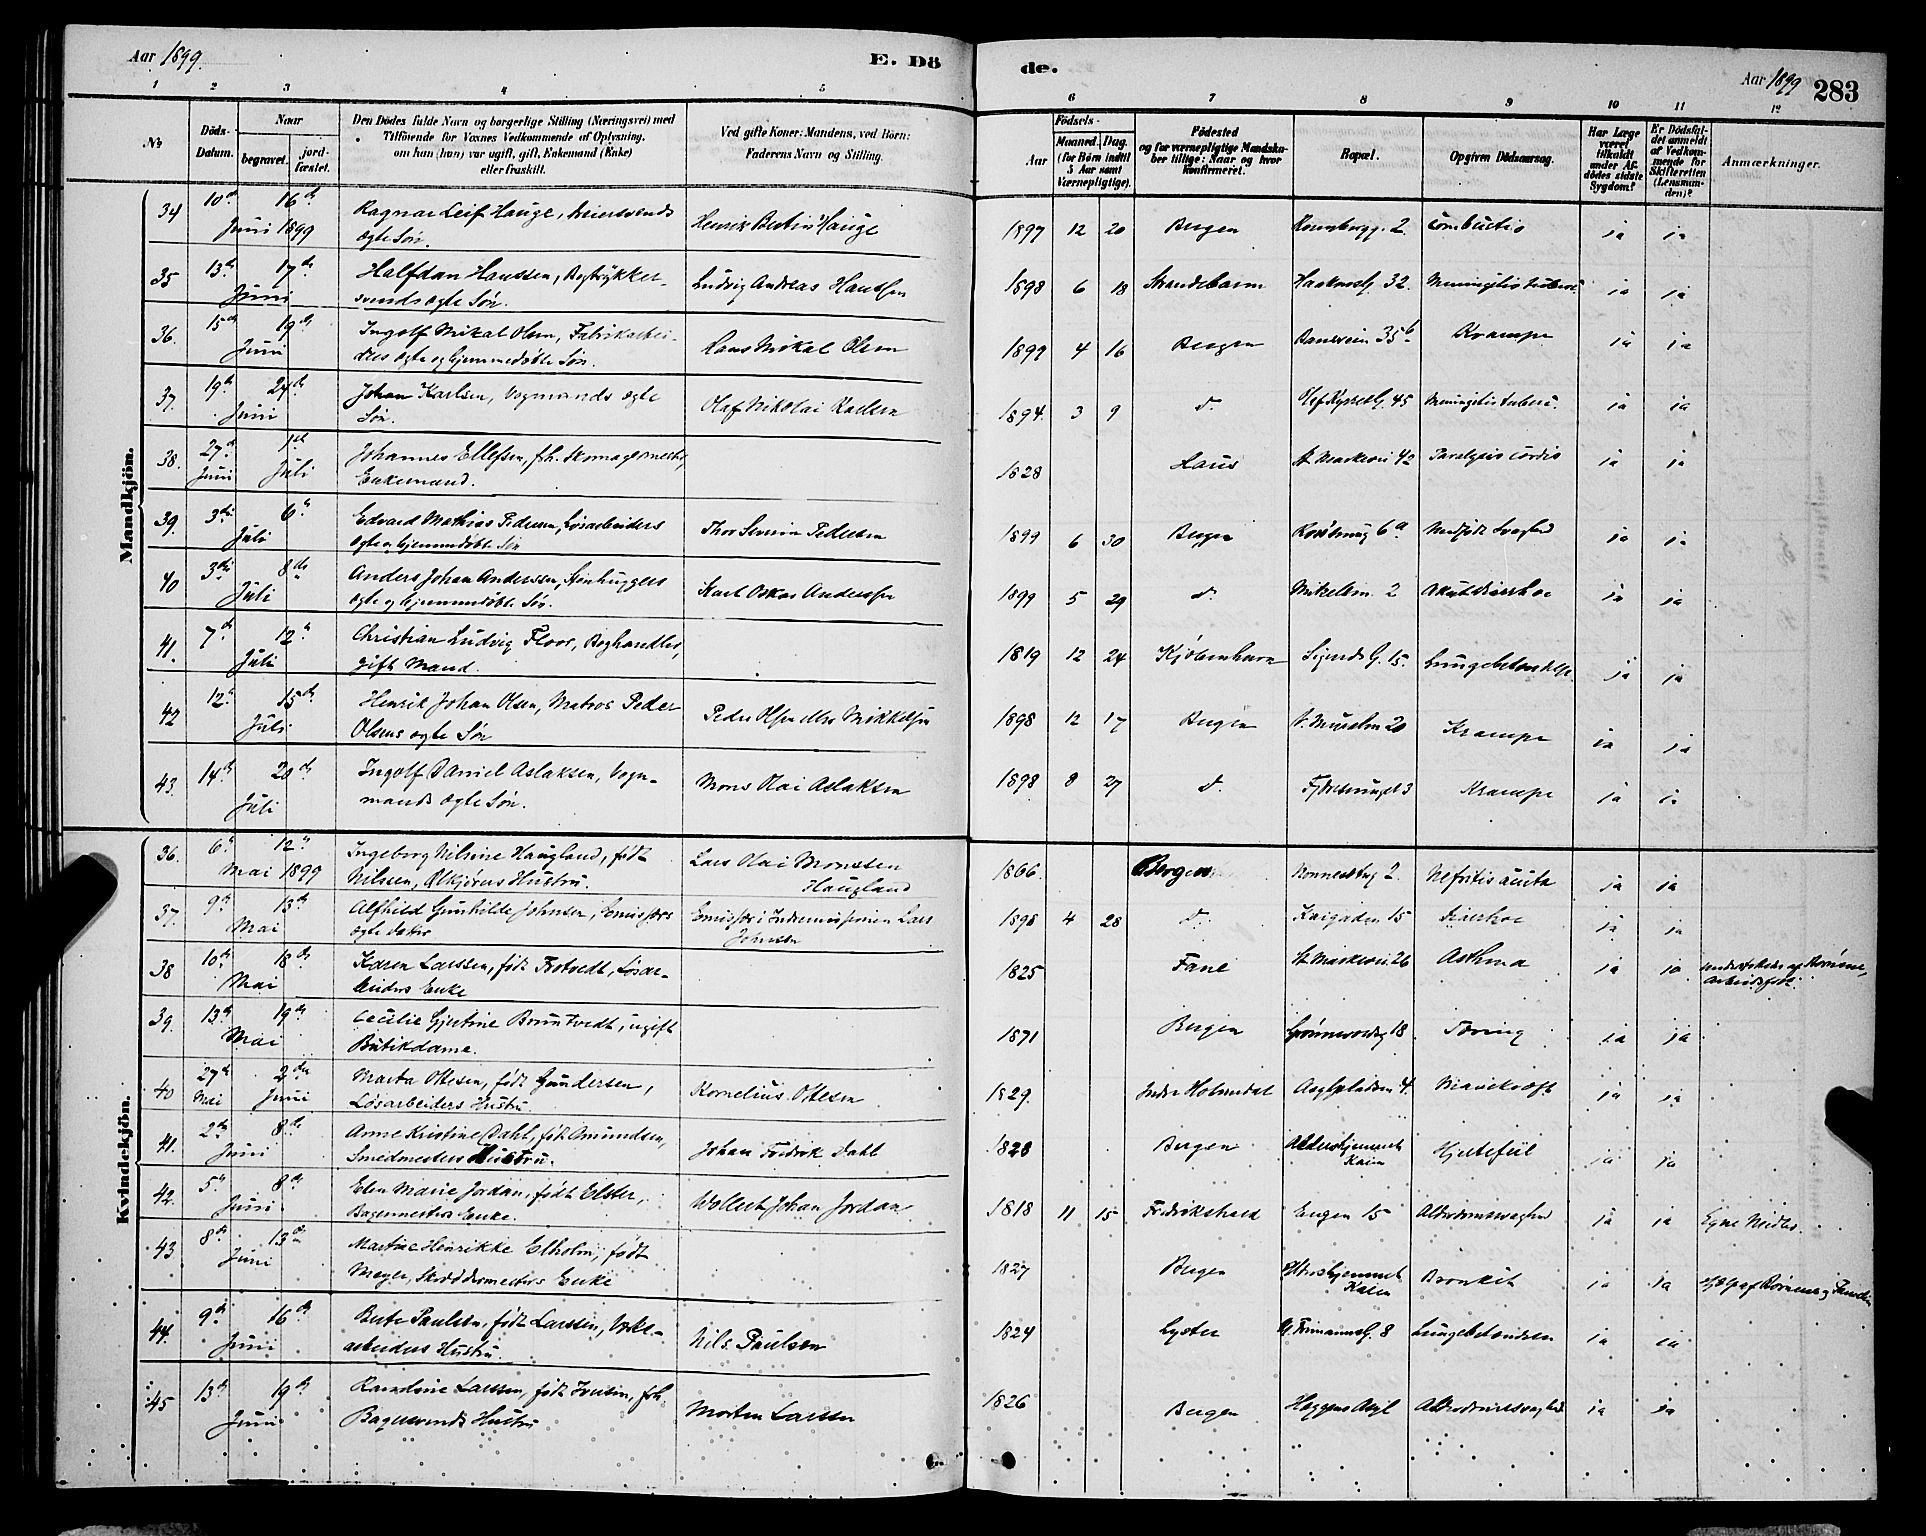 Aar 1899.
E. Dö
de.
Aar 1899
283
1 2 3 4 5 6 7 8 9 10 11 12
No
Döds-Datum.
Naar begravet. jordfæstet.
Den Dödes fulde Navn og borgerlige Stilling (Næringsvei) med Tilföiende for Voxnes Vedkommende af Oplysning, om han (hun) var ugift, gift, Enkemand (Enke) eller fraskilt.
Ved gifte Koner: Mandens, ved Börn: Faderens Navn og Stilling.
Födsels-
Aar
Maaned. Dag. (for Börn indtil 5 Aar samt Værnepligtige).
Födested og for værnepligtige Mandskaber tillige: Naar og hvor konfirmeret.
Bopæl.
Opgiven Dödsaarsag.
Har Læge været tilkaldt under Afdödes sidste Sygdom?
Er Dödsfaldet anmeldt af Vedkommende for Skifteretten (Lensmanden)?
Anmærkninger.
Mandkjön.
34 10de Juni 16de 1899 Ragnar Leif Hauge, Meiersvends ægte Søn. Henrik Bertin Hauge 1897 12 20 Bergen 2. Combustio ja ja
35 13de 17de Juni Halfdan Hanssen, Bogtrykkersvends ægte Søn. Ludvig Andreas Hanssen 1898 6 18 Strandebarm Haakonsg. 32. Meningitis tuberc. ja ja
36. 15de 19de Juni Ingolf Mikal Olsen, Fabrikarbeiders ægte og hjemmedøbte Søn. Hans Mikal Olsen 1899 4 16 Bergen 35b Krampe ja ja
37. 19de 24de Juni Johan Karlsen, Vognmands ægte Søn. Olaf Nikolai Karlsen 1894. 3 9 d. 45 Meningitis tuberc. ja ja
38. 27de Juni 1ste Juli Johannes Ellefsen, fh. Skomagermester, Enkemand. 1828 Haus St. Markevei 42 Paralysis cordis ja ja
39. 3die 6te Juli Edvard Mathias Pedersen, Løsarbeiders ægte hjemmedøbte Søn Thor Severin Pedersen 1899 6 30 Bergen 6a Medfødt Svaghed ja ja
40 3die 8de Juli Anders Johan Anderssen, Stenhuggers ægte og hjemmedøbte Søn. Karl Oskar Anderssen 1899 5 29 d. 2 Akut Diarrhoe ja ja
41. 7de 12te Juli Christian Ludvig Floor, Boghandler, gift Mand. 1819 12 24 Kjøbenhavn Sigurds G. 15. Lungebetændelse ja ja
42 12te 15de Juli Henrik Johan Olsen, Matros Peder Olsens ægte Søn Peder Olsen eller Mikkelsen 1898 12 17 Bergen 20 Krampe ja ja
43. 14de 20de Juli Ingolf Daniel Aslaksen, Vognmands ægte Søn. Mons Olai Aslaksen 1898 8 27 d. 3 Krampe ja ja
Kvindekjön.
36. 6te 12te Mai 1899 Ingeborg Nilsine Haugland, født Nilssen, Ølkjørers Hustru. Lars Olai Monssen Haugland 1866. Bergen 2. Nefritis acuta ja ja
37. 9de 13de Mai Alfhild Gunhilde Johnsen, Emissærs ægte Datter Emissær i Indremissionen Lars Johnsen 1898 4 28 d. Kaigaden 15 Diarrhoe ja ja
38 10de 18de Mai Karen Larssen, født Tostvedt, Løsarbeiders Enke 1825 Fane St. Markevei 26 Asthma ja ja
39. 13de 19de Mai Cecilie Gjertine Bruntvedt, ugift Butikdame. 1871 Bergen 18 Tæring ja ja
40 27de Mai 2den Juni Marta Ottesen, født Gundersen, Løsarbeiders Hustru. Kornelius Ottesen 1829. Indre Holmedal Asylpladsen 4. Mavekræft ja ja
41. 2den 8de Juni Anne Kristine Dahl, født Amundsen, Smedmesters Hustru. Johan Fredrik Dahl 1828 Bergen Aldershjemmet Kalfa Hjertefeil ja ja
42. 5te 8de Juni Elen Marie Jordan, født Elster, Bagermesters Enke. Wollert Johan Jordan 1818 11 15 Fredrikshald Engen 15 Alderdomssvaghed ja ja Egne Midler.
43 8de 13de Juni Martine Henrikke Elholm, født Meyer, Skræddermesters Enke 1827 Bergen Aldershjemmet Kalfa Bronkit ja ja
44. 9de 16de Juni Berte Paulsen, født Larssen, arbeiders Hustru. Nils Paulsen 1824 Lyster 8 Lungebetændelsen ja ja
45 13de 19de Juni Randine Larssen, født Iversen, fh. Bagersvends Hustru Morten Larssen 1826 Bergen Haggens Asyl Alderdomssvaghed. ja ja